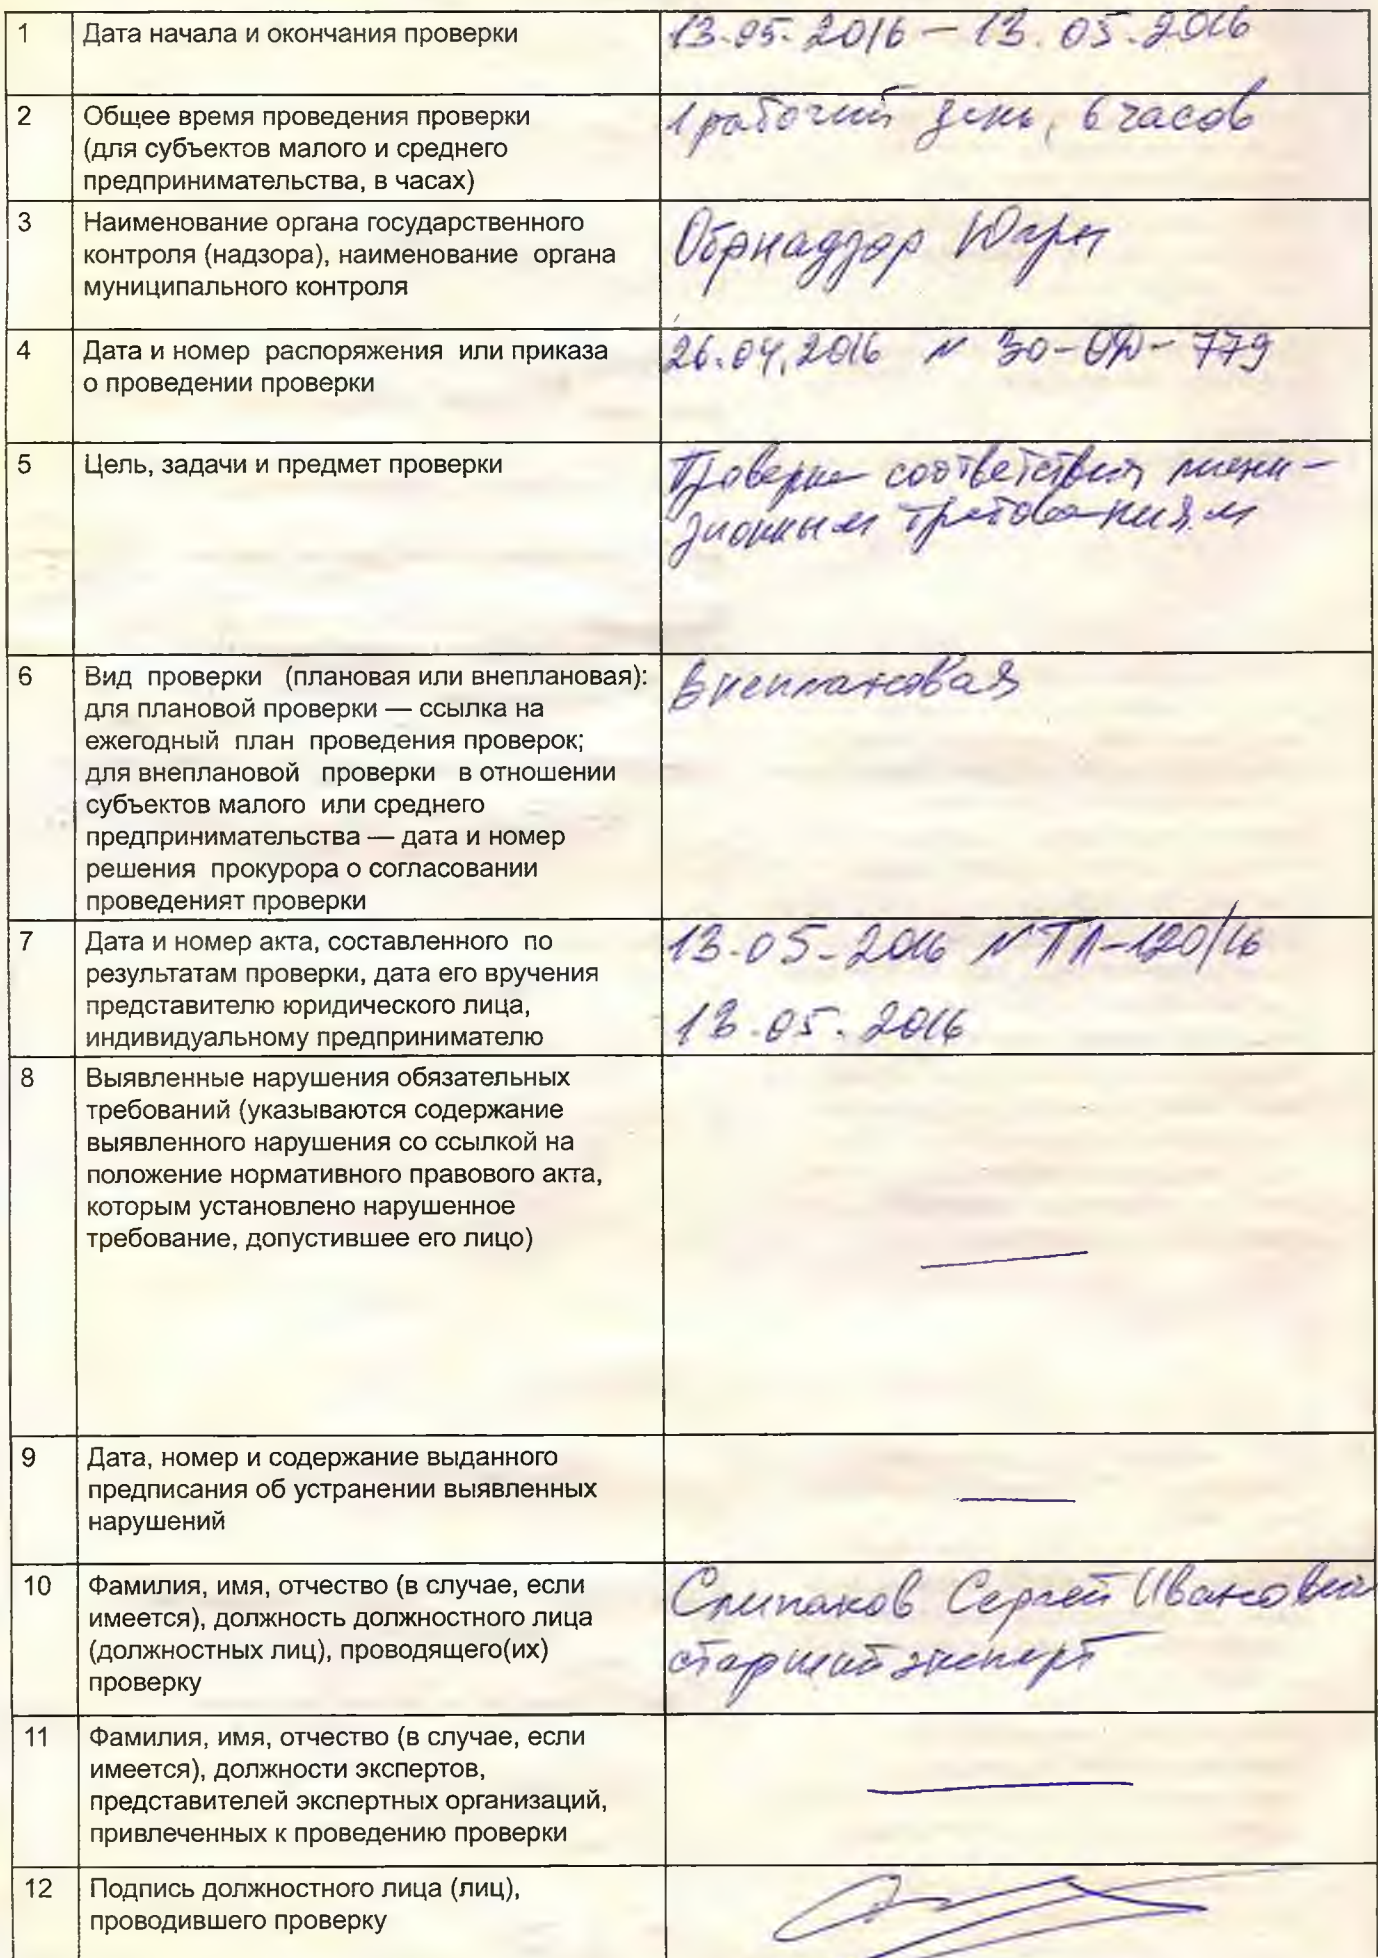 1 Дата начала и окончания проверки 13.05.2016 – 13.05.2016
2 Общее время проведения проверки 1 рабочий день, 6 часов
(для субъектов малого и среднего
предпринимательства, в часах)
3 Наименование органа государственного
контроля (надзора), наименование органа Обрнадзор Югры
муниципального контроля
4 Дата и номер распоряжения или приказа 26.04.2016 № 30-ОД-779
о проведении проверки
5 Цель, задачи и предмет проверки Проверка соответствия лицен-
зионным требованиям
6 Вид проверки (плановая или внеплановая): Внеплановая
для плановой проверки — ссылка на
ежегодный план проведения проверок;
для внеплановой проверки в отношении
субъектов малого или среднего
предпринимательства — дата и номер
решения прокурора о согласовании
проведеният проверки
7 Дата и номер акта, составленного по 13.05.2016 № ПЛ-120/16
результатам проверки, дата его вручения
представителю юридического лица, 13.05.2016
индивидуальному предпринимателю
8 Выявленные нарушения обязательных
требований (указываются содержание
выявленного нарушения со ссылкой на
положение нормативного правового акта,
которым установлено нарушенное
требование, допустившее его лицо) —
9 Дата, номер и содержание выданного
предписания об устранении выявленных —
нарушений
10 Фамилия, имя, отчество (в случае, если Слипаков Сергей Иванович
имеется), должность должностного лица
(должностных лиц), проводящего(их) старший эксперт
проверку
11 Фамилия, имя, отчество (в случае, если
имеется), должности экспертов, —
представителей экспертных организаций,
привлеченных к проведению проверки
12 Подпись должностного лица (лиц),
проводившего проверку